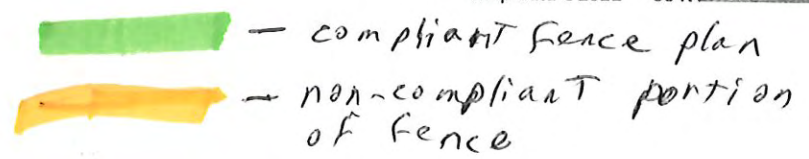 - compliant fence plan
- non-compliant portion
of fence